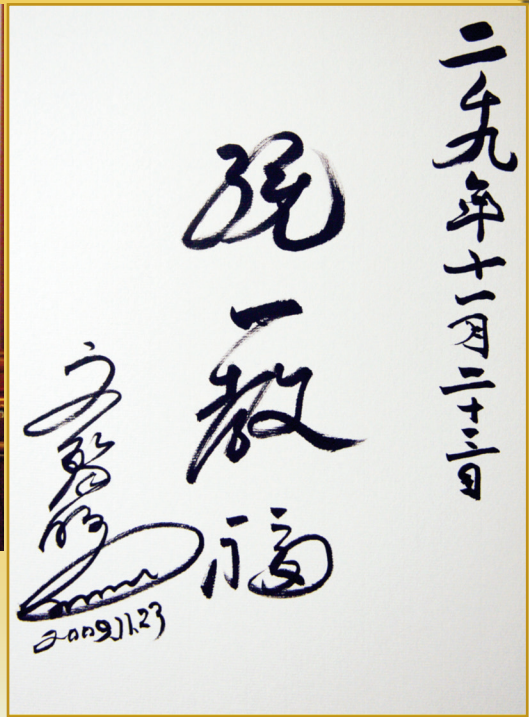 二千九年十一月二十三日
統一教福
文
2009.11.23